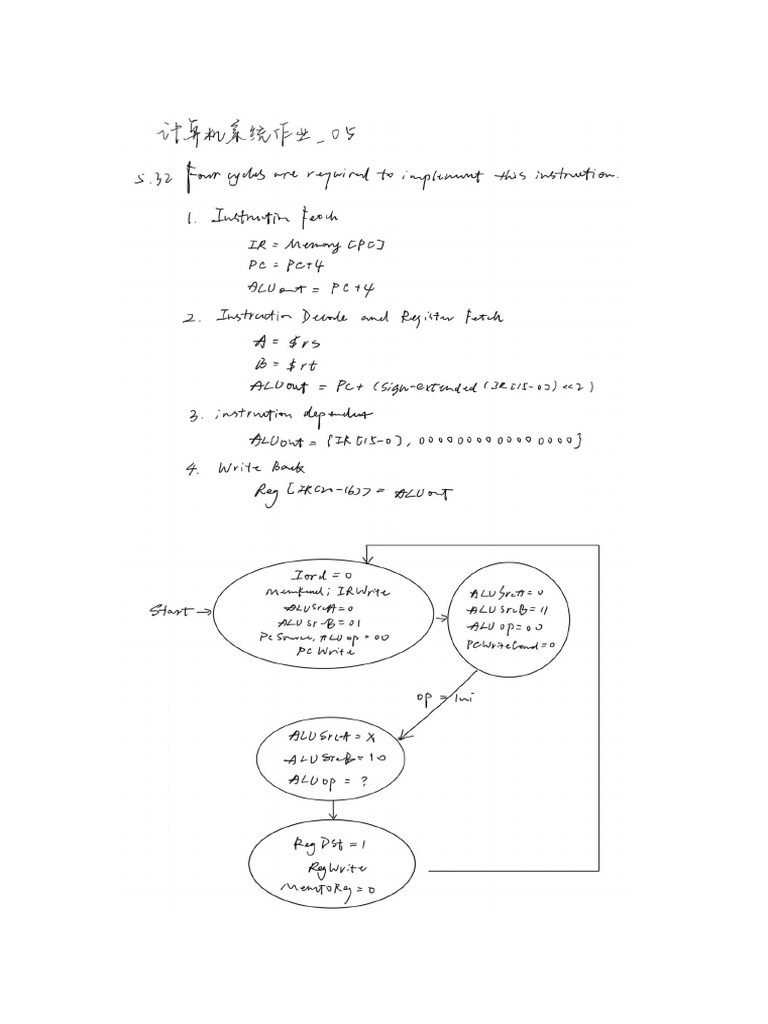 计算机系统作业_05
5.32 Four cycles are required to implement this instruction.
1. Instruction Fetch
IR = Memory [PC]
PC = PC+4
ALUout = PC+4
2. Instruction Decode and Register Fetch
A = $rs
B = $rt
ALUout = PC+ (sign-extended (IR[15-0]) <<2)
3. instruction dependent
ALUout = {IR[15-0], 0000000000000000}
4. Write Back
Reg [IR[20-16]] = ALUout
Iord = 0
MemRead; IRWrite
ALUSrcA=0
ALUSrcB=01
PCSource, ALUop=00
PCWrite
Start
ALUSrcA=0
ALUSrcB=11
ALUop=00
PCWriteCond=0
op = lui
ALUSrcA=X
ALUSrcB=10
ALUop = ?
RegDst=1
RegWrite
MemtoReg=0